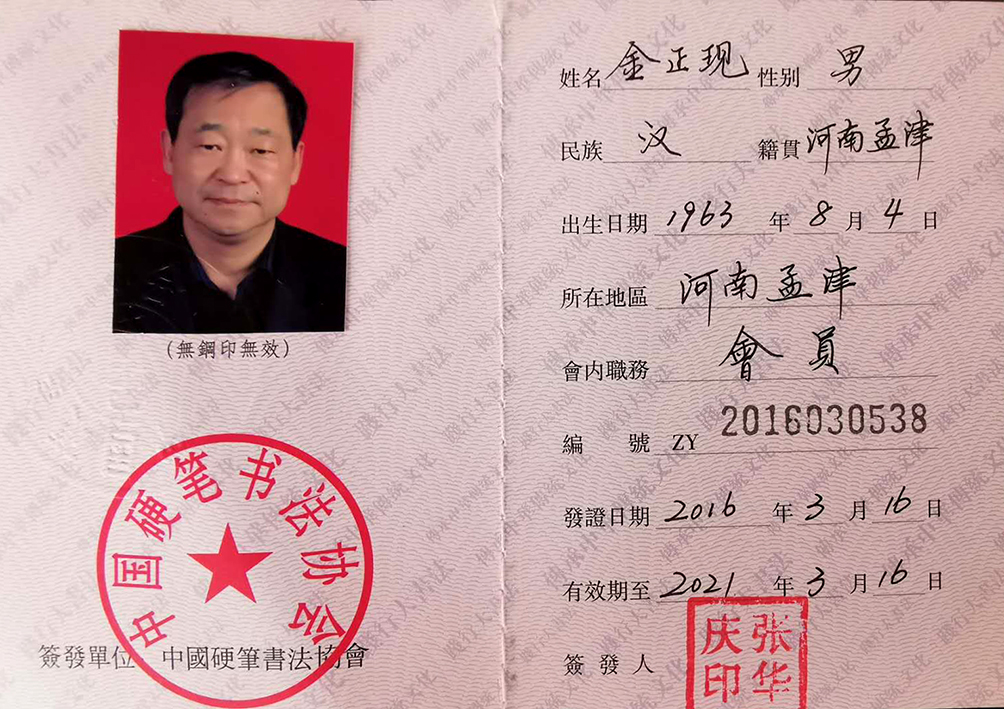 (無鋼印無效)
中国硬笔书法协会
簽發單位 中國硬筆書法協會
姓名 金正现 性别 男
民族 汉 籍貫 河南孟津
出生日期 1963 年 8 月 4 日
所在地區 河南孟津
會内職務 會員
編 號 ZY 2016030538
發證日期 2016 年 3 月 16 日
有效期至 2021 年 3 月 16 日
簽發人
张华庆印